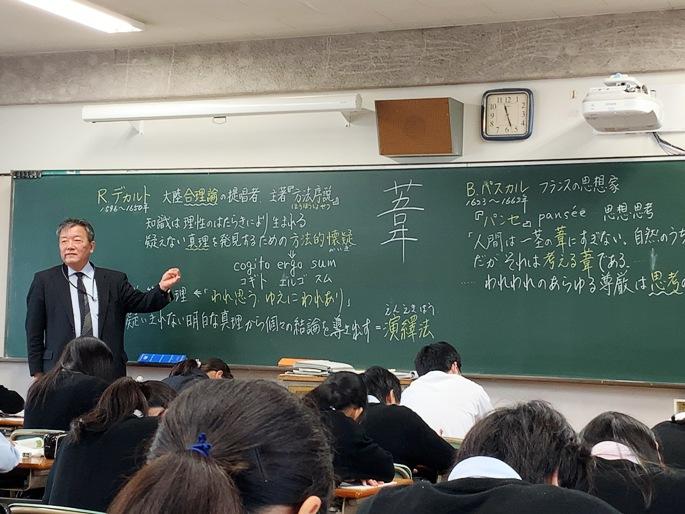 R. デカルト 大陸合理論の提唱者、主著『方法序説』
1596〜1650年
ほうほうじょせつ
知識は理性のはたらきにより生まれる
疑えない真理を発見するための方法的懐疑
かいぎ
↓
cogito ergo sum
コギト エルゴ スム
理 ← 「われ思う、ゆえにわれあり」
疑いえない明白な真理から個々の結論を導き出す = 演繹法
えんえきほう
葦
B. パスカル フランスの思想家
1623〜1662年
『パンセ』 pansée 思想思考
「人間は一茎の葦にすぎない、自然のうち
だがそれは考える葦である。……
……われわれのあらゆる尊厳は思考の